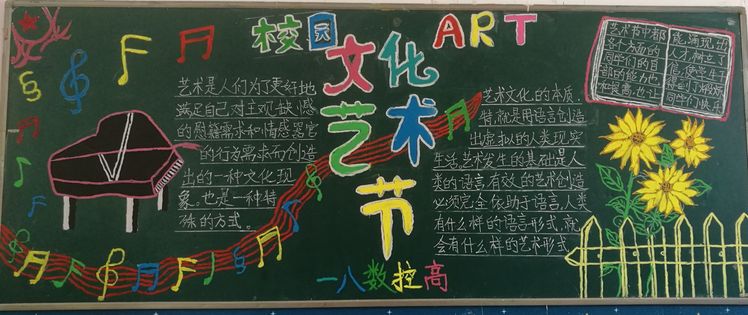 校园 ART
文化
艺术
节
艺术是人们为了更好地
满足自己对主观缺憾感
的慰籍需求和情感器官
的行为需求而创造
出的一种文化现
象。也是一种特
殊的方式。
艺术文化的本质.
特,就是用语言创造
出虚拟的人类现实
生活,艺术发生的基础是人
类的语言,有效的艺术创造
必须完全依助于语言,人类
有什么样的语言形式,就
会有什么样的艺术形式
艺术节中都
各个方面的
同学们的自
部的能力也
一八数控高